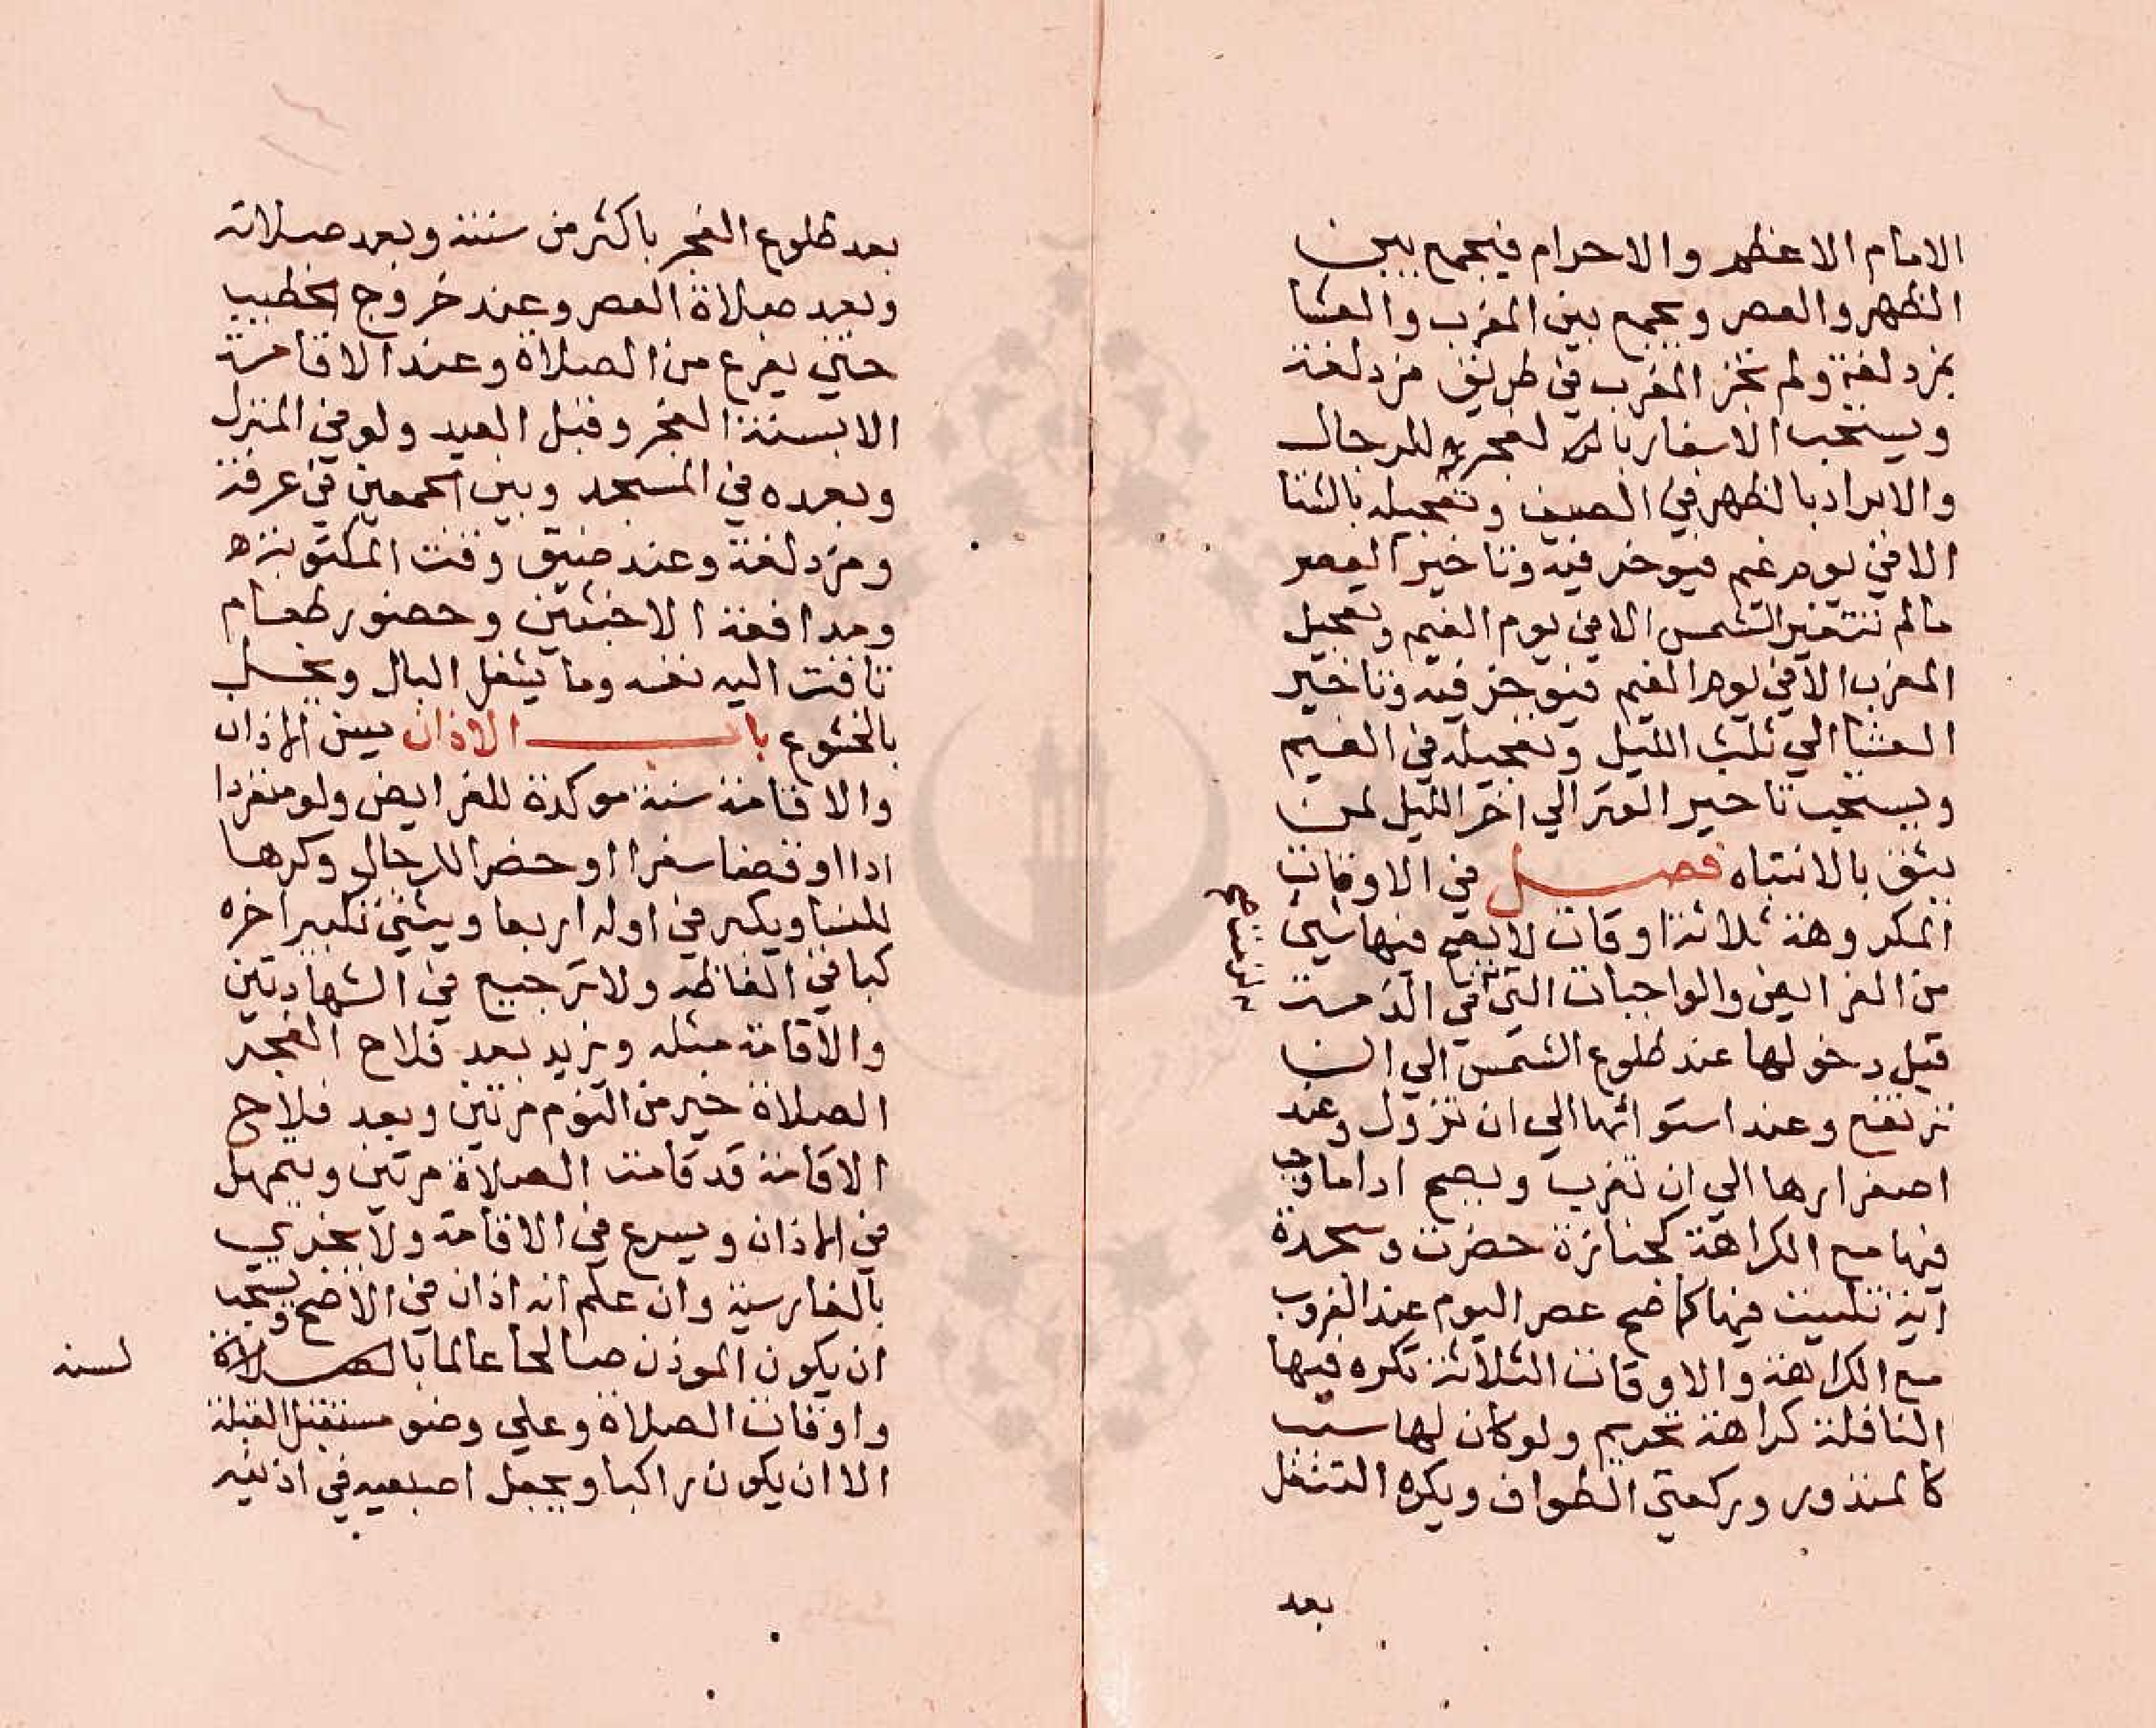 الامام الاعظم والاحرام فيجمع بين
الظهر والعصر ويجمع بين المغرب والعشا
بمزدلفة ولم تجز المغرب في طريق مزدلفة
ويستحب الاسفار بالفجر للرجال
والابراد بالظهر في الصيف وتعجيله بالشتا
الا في يوم غيم فيوخر فيه وتاخير العصر
مالم تتغير الشمس الا في يوم الغيم وتعجيل
المغرب الا في يوم الغيم فيوخر فيه وتاخير
العشا الي ثلث الليل وتعجيله في الغيم
ويستحب تاخير الوتر الي اخر الليل لمن
يثق بالانتباه فصل في الاوقات
المكروهة ثلاثة اوقات لا يصح فيها شي
من الفرايض والواجبات التي في الذمة
قبل دخولها عند طلوع الشمس الي ان
ترتفع وعند استوائها الي ان تزول وعند
اصفرارها الي ان تغرب ويصح ادا ما وجب
فيها مع الكراهة كجنازة حضرت وسجدة
اية تليت فيها كما صح عصر اليوم عند الغروب
مع الكراهة والاوقات الثلاثة تكره فيها
النافلة كراهة تحريم ولو كان لها سبب
كالمنذور وركعتي الطواف ويكره التنفل
بعد
بعد طلوع الفجر باكثر من سنته وبعد صلاته
وبعد صلاة العصر وعند خروج الخطيب
حتي يفرغ من الصلاة وعند الاقامة
الا بسنة الفجر وقبل العيد ولو في المنزل
وبعده في المسجد وبين الجمعين في عرفة
ومزدلفة وعند ضيق وقت المكتوبة
ومدافعة الاخبثين وحضور طعام
تاقت اليه نفسه وما يشغل البال ويخل
بالخشوع باب الاذان يسن الاذان
والاقامة سنة موكدة للفرايض ولو منفردا
ادا او قضا سفرا او حضرا للرجال وكرها
للنسا ويكبر في اوله اربعا ويثني تكبير اخره
كباقي الفاظه ولا ترجيع في الشهادتين
والاقامة مثله ويزيد بعد فلاح الفجر
الصلاة خير من النوم مرتين وبعد فلاح
الاقامة قد قامت الصلاة مرتين ويتمهل
في الاذان ويسرع في الاقامة ولا يجزي
بالفارسية وان علم انه اذان في الاصح ويستحب
ان يكون الموذن صالحا عالما بالصلاة
واوقات الصلاة وعلي وضو مستقبل القبلة
الا ان يكون راكبا ويجعل اصبعيه في اذنيه
لسنه